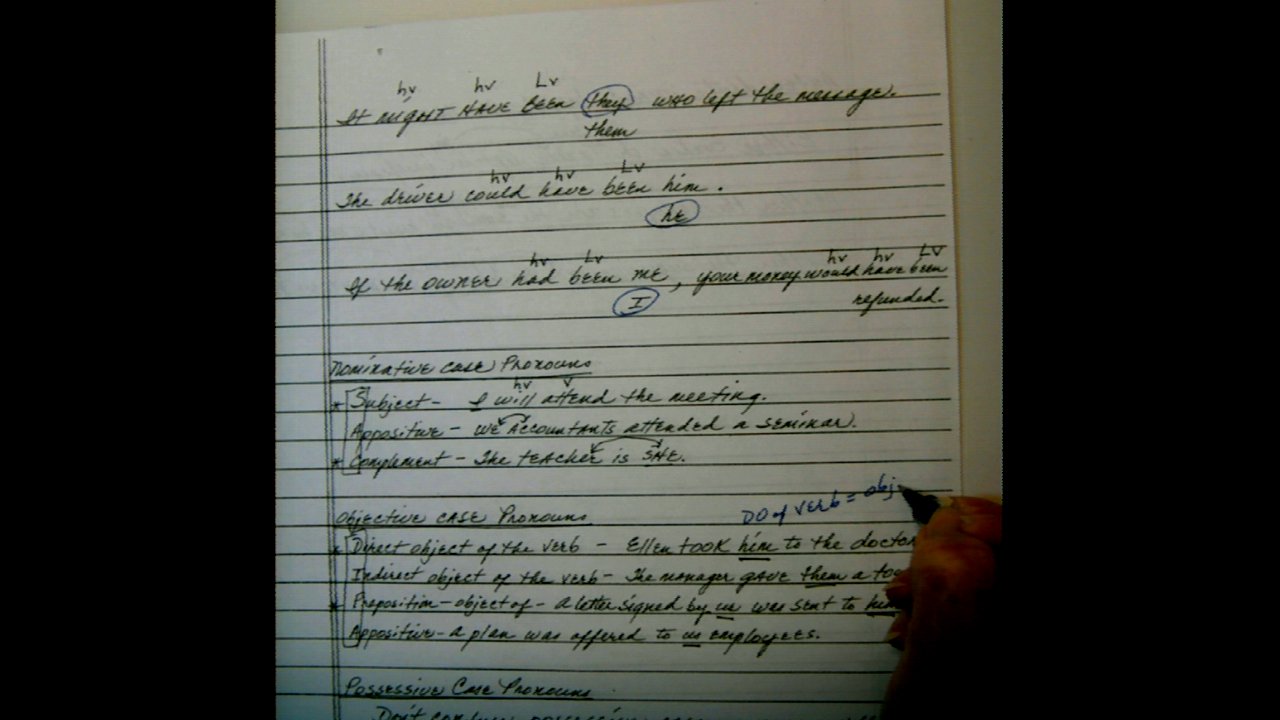 hv hv Lv
It might HAVE BEEN they who left the message.
them
hv hv Lv
The driver could have been him.
he
hv Lv hv hv LV
If the owner had been me, your money would have been
I refunded.
Nominative case Pronouns
hv v
* Subject - I will attend the meeting.
Appositive - WE Accountants attended a seminar.
* Complement - The teacher is SHE.
DO of verb = obj.
Objective case Pronouns
* Direct object of the verb - Ellen took him to the doctor
Indirect object of the verb - The manager gave them a
* Preposition - object of - A letter signed by us was sent to him
Appositive - A plan was offered to us employees.
Possessive Case Pronouns
Don't possessive